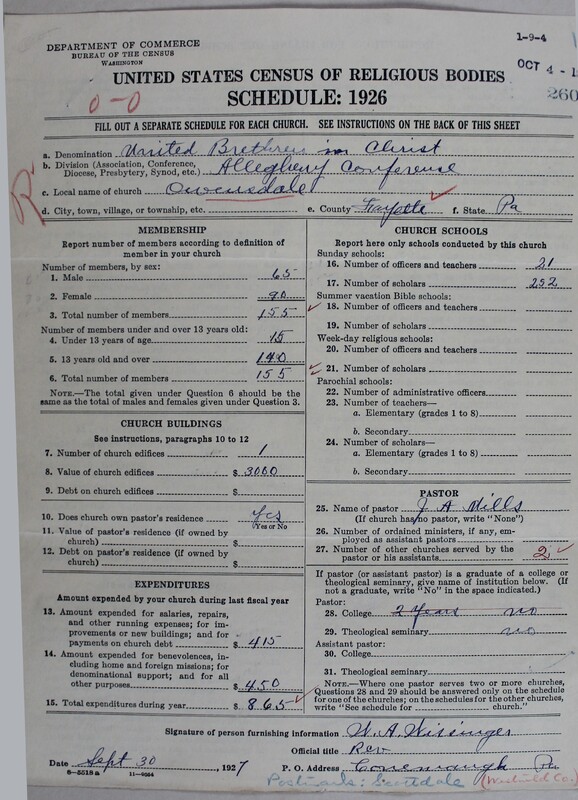 1-9-4
DEPARTMENT OF COMMERCE
BUREAU OF THE CENSUS
WASHINGTON
OCT 4 - 1
260
UNITED STATES CENSUS OF RELIGIOUS BODIES
SCHEDULE: 1926
0-0
FILL OUT A SEPARATE SCHEDULE FOR EACH CHURCH. SEE INSTRUCTIONS ON THE BACK OF THIS SHEET
a. Denomination United Brethren in Christ
b. Division (Association, Conference, Diocese, Presbytery, Synod, etc.) Allegheny Conference
c. Local name of church Owensdale
R
d. City, town, village, or township, etc. e. County Fayette ✓ f. State Pa
MEMBERSHIP
Report number of members according to definition of
member in your church
Number of members, by sex:
1. Male 65
2. Female 90
3. Total number of members 155
Number of members under and over 13 years old:
4. Under 13 years of age 15
5. 13 years old and over 140
6. Total number of members 155
NOTE.—The total given under Question 6 should be
the same as the total of males and females given under Question 3.
CHURCH BUILDINGS
See instructions, paragraphs 10 to 12
7. Number of church edifices 1
8. Value of church edifices $ 3000
9. Debt on church edifices $
10. Does church own pastor's residence Yes
(Yes or No
11. Value of pastor's residence (if owned by
church) $
12. Debt on pastor's residence (if owned by
church) $
EXPENDITURES
Amount expended by your church during last fiscal year
13. Amount expended for salaries, repairs,
and other running expenses; for im-
provements or new buildings; and for
payments on church debt $ 415
14. Amount expended for benevolences,
including home and foreign missions; for
denominational support; and for all
other purposes $ 450
15. Total expenditures during year $ 865 ✓
CHURCH SCHOOLS
Report here only schools conducted by this church
Sunday schools:
16. Number of officers and teachers 21
17. Number of scholars 252
Summer vacation Bible schools:
✓ 18. Number of officers and teachers
19. Number of scholars
Week-day religious schools:
20. Number of officers and teachers
21. Number of scholars
Parochial schools:
22. Number of administrative officers
23. Number of teachers—
a. Elementary (grades 1 to 8)
b. Secondary
24. Number of scholars—
a. Elementary (grades 1 to 8)
b. Secondary
PASTOR
25. Name of pastor J A Mills
(If church has no pastor, write "None")
26. Number of ordained ministers, if any, em-
ployed as assistant pastors
27. Number of other churches served by the
pastor or his assistants 2 ✓
If pastor (or assistant pastor) is a graduate of a college or
theological seminary, give name of institution below. (If
not a graduate, write "No" in the space indicated.)
Pastor:
28. College 2 Years no
29. Theological seminary no
Assistant pastor:
30. College
31. Theological seminary
NOTE.—Where one pastor serves two or more churches,
Questions 28 and 29 should be answered only on the schedule
for one of the churches; on the schedules for the other churches,
write "See schedule for church."
Signature of person furnishing information W. A. Wissinger
Official title Rev
Date Sept 30, 1927 P. O. Address Conemaugh Pa
8-5518a 11-9064
Postmark: Scottdale